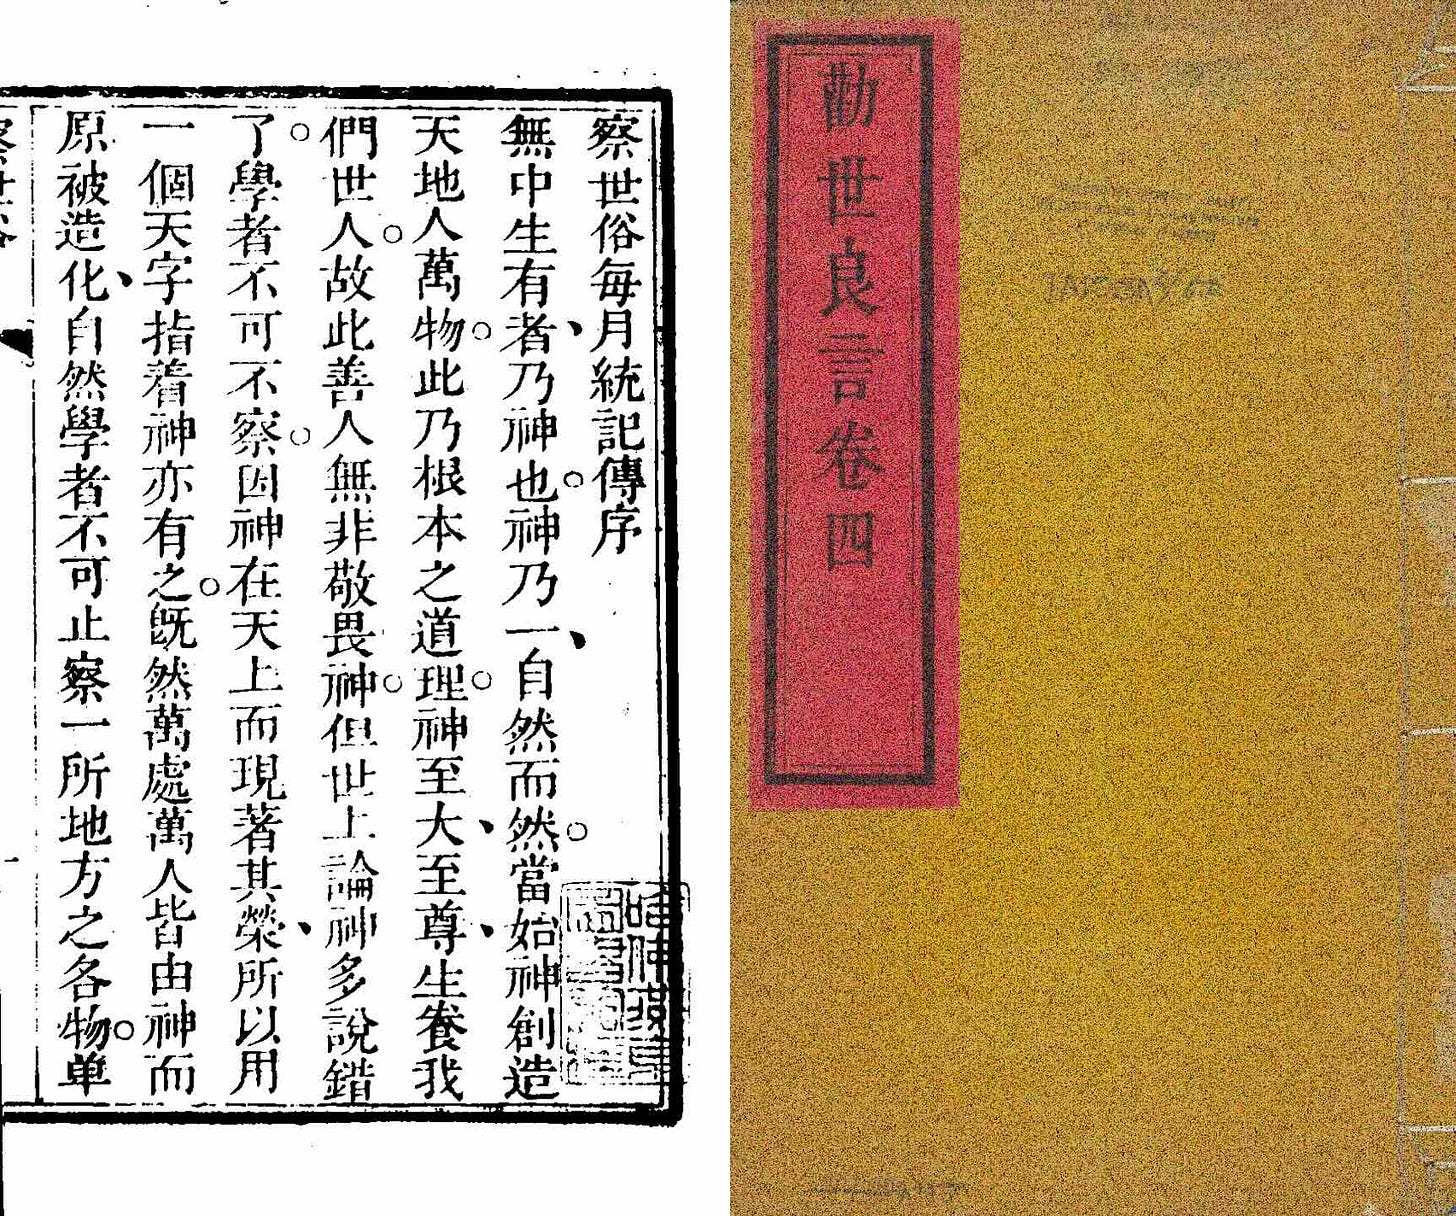 察世俗每月統記傳序
無中生有者乃神也神乃一自然而然當始神創造
天地人萬物此乃根本之道理神至大至尊生養我
們世人故此善人無非敬畏神但世上論神多說錯
了學者不可不察因神在天上而現著其榮所以用
一個天字指着神亦有之既然萬處萬人皆由神而
原被造化自然學者不可止察一所地方之各物單
察世俗
勸世良言卷四